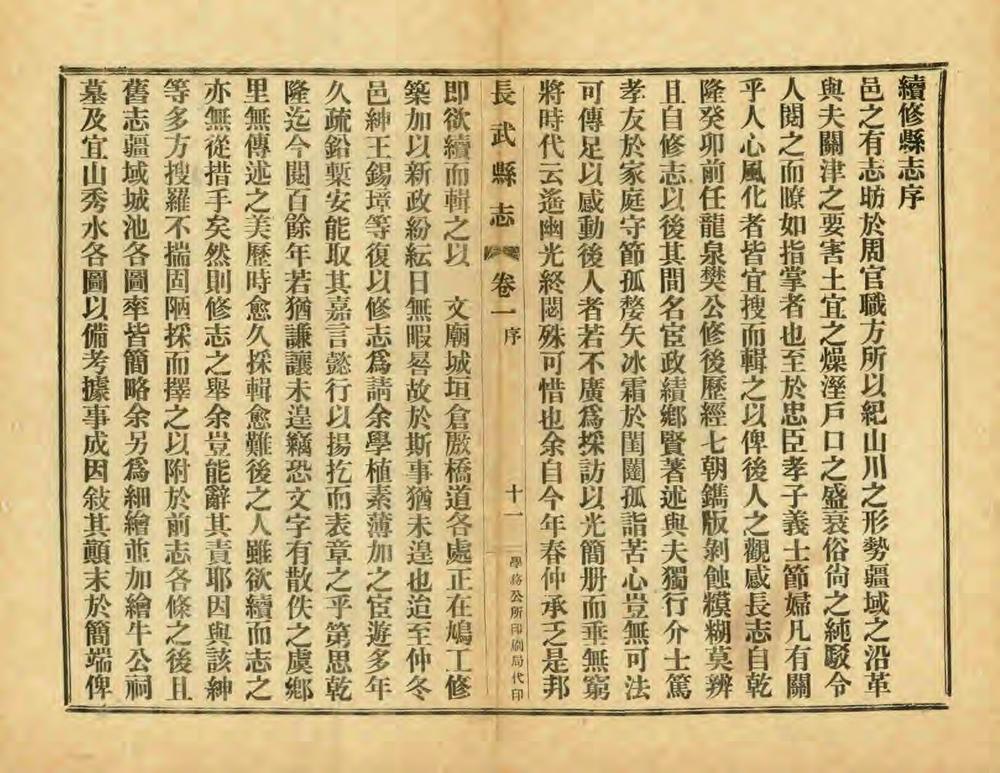 續修縣志序
邑之有志昉於周官職方所以紀山川之形勢疆域之沿革
與夫關津之要害土宜之燥溼戶口之盛衰俗尙之純駁令
人閱之而瞭如指掌者也至於忠臣孝子義士節婦凡有關
乎人心風化者皆宜搜而輯之以俾後人之觀感長志自乾
隆癸卯前任龍泉樊公修後歷經七朝鐫版剝蝕糢糊莫辨
且自修志以後其間名宦政績鄉賢著述與夫獨行介士篤
孝友於家庭守節孤嫠矢冰霜於閨闥孤詣苦心豈無可法
可傳足以感動後人者若不廣爲採訪以光簡册而垂無窮
將時代云遙幽光終閟殊可惜也余自今年春仲承乏是邦
長武縣志 卷一 序 十一 學務公所印刷局代印
即欲續而輯之以 文廟城垣倉廒橋道各處正在鳩工修
築加以新政紛紜日無暇晷故於斯事猶未遑也迨至仲冬
邑紳王錫璋等復以修志爲請余學植素薄加之宦遊多年
久疏鉛槧安能取其嘉言懿行以揚扢而表章之乎第思乾
隆迄今閱百餘年若猶謙讓未遑竊恐文字有散佚之虞鄉
里無傳述之美歷時愈久採輯愈難後之人雖欲續而志之
亦無從措手矣然則修志之舉余豈能辭其責耶因與該紳
等多方搜羅不揣固陋採而擇之以附於前志各條之後且
舊志疆域城池各圖率皆簡略余另爲細繪並加繪牛公祠
墓及宜山秀水各圖以備考據事成因敍其顛末於簡端俾